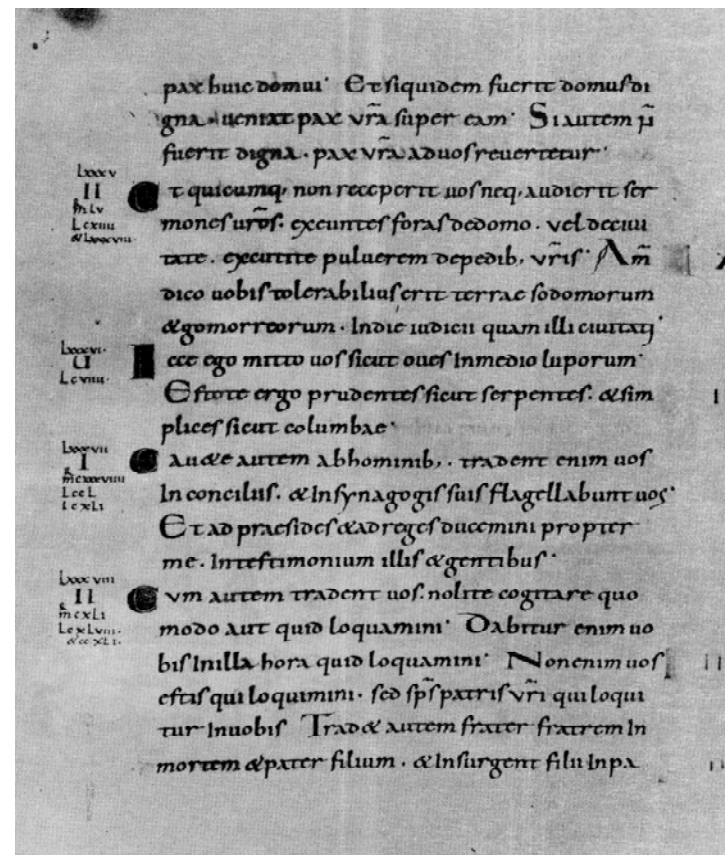 pax huic domui· Et siquidem fuerit domus di
gna· ueniat pax vr̃a super eam· Si autem ñ
fuerit digna· pax vr̃a ad uos reuertetur·
lxxxv
II
m lv
L cxiiii
& lxxxviii·
Et quicumq; non receperit uos neq; audierit ser
mones ur̃os· exeuntes foras de domo· vel de ciui
tate· excutite puluerem de pedib; vr̃is· Am̃
dico uobis tolerabilius erit terrae sodomorum
& gomorreorum· In die iudicii quam illi ciuitati·
lxxxvi·
U
L cviiii·
Ecce ego mitto uos sicut oues In medio luporum·
Estote ergo prudentes sicut serpentes· & sim
plices sicut columbae·
lxxxvii
I
m cxxxviiii
L ccL
I cxLi
Cau&e autem ab hominib;· tradent enim uos
In conciliis· & In synagogis suis flagellabunt uos·
Et ad praesides & ad reges ducemini propter
me· In testimonium illis & gentibus·
lxxxviii
II
m cxLi
L cxLviii·
& cc xLi·
Cum autem tradent uos· nolite cogitare quo
modo aut quid loquamini· Dabitur enim uo
bis In illa hora quid loquamini· Non enim uos
estis qui loquimini· sed sp̃s patris vr̃i qui loqui
tur In uobis Trad& autem frater fratrem In
mortem & pater filium· & Insurgent filii In pa